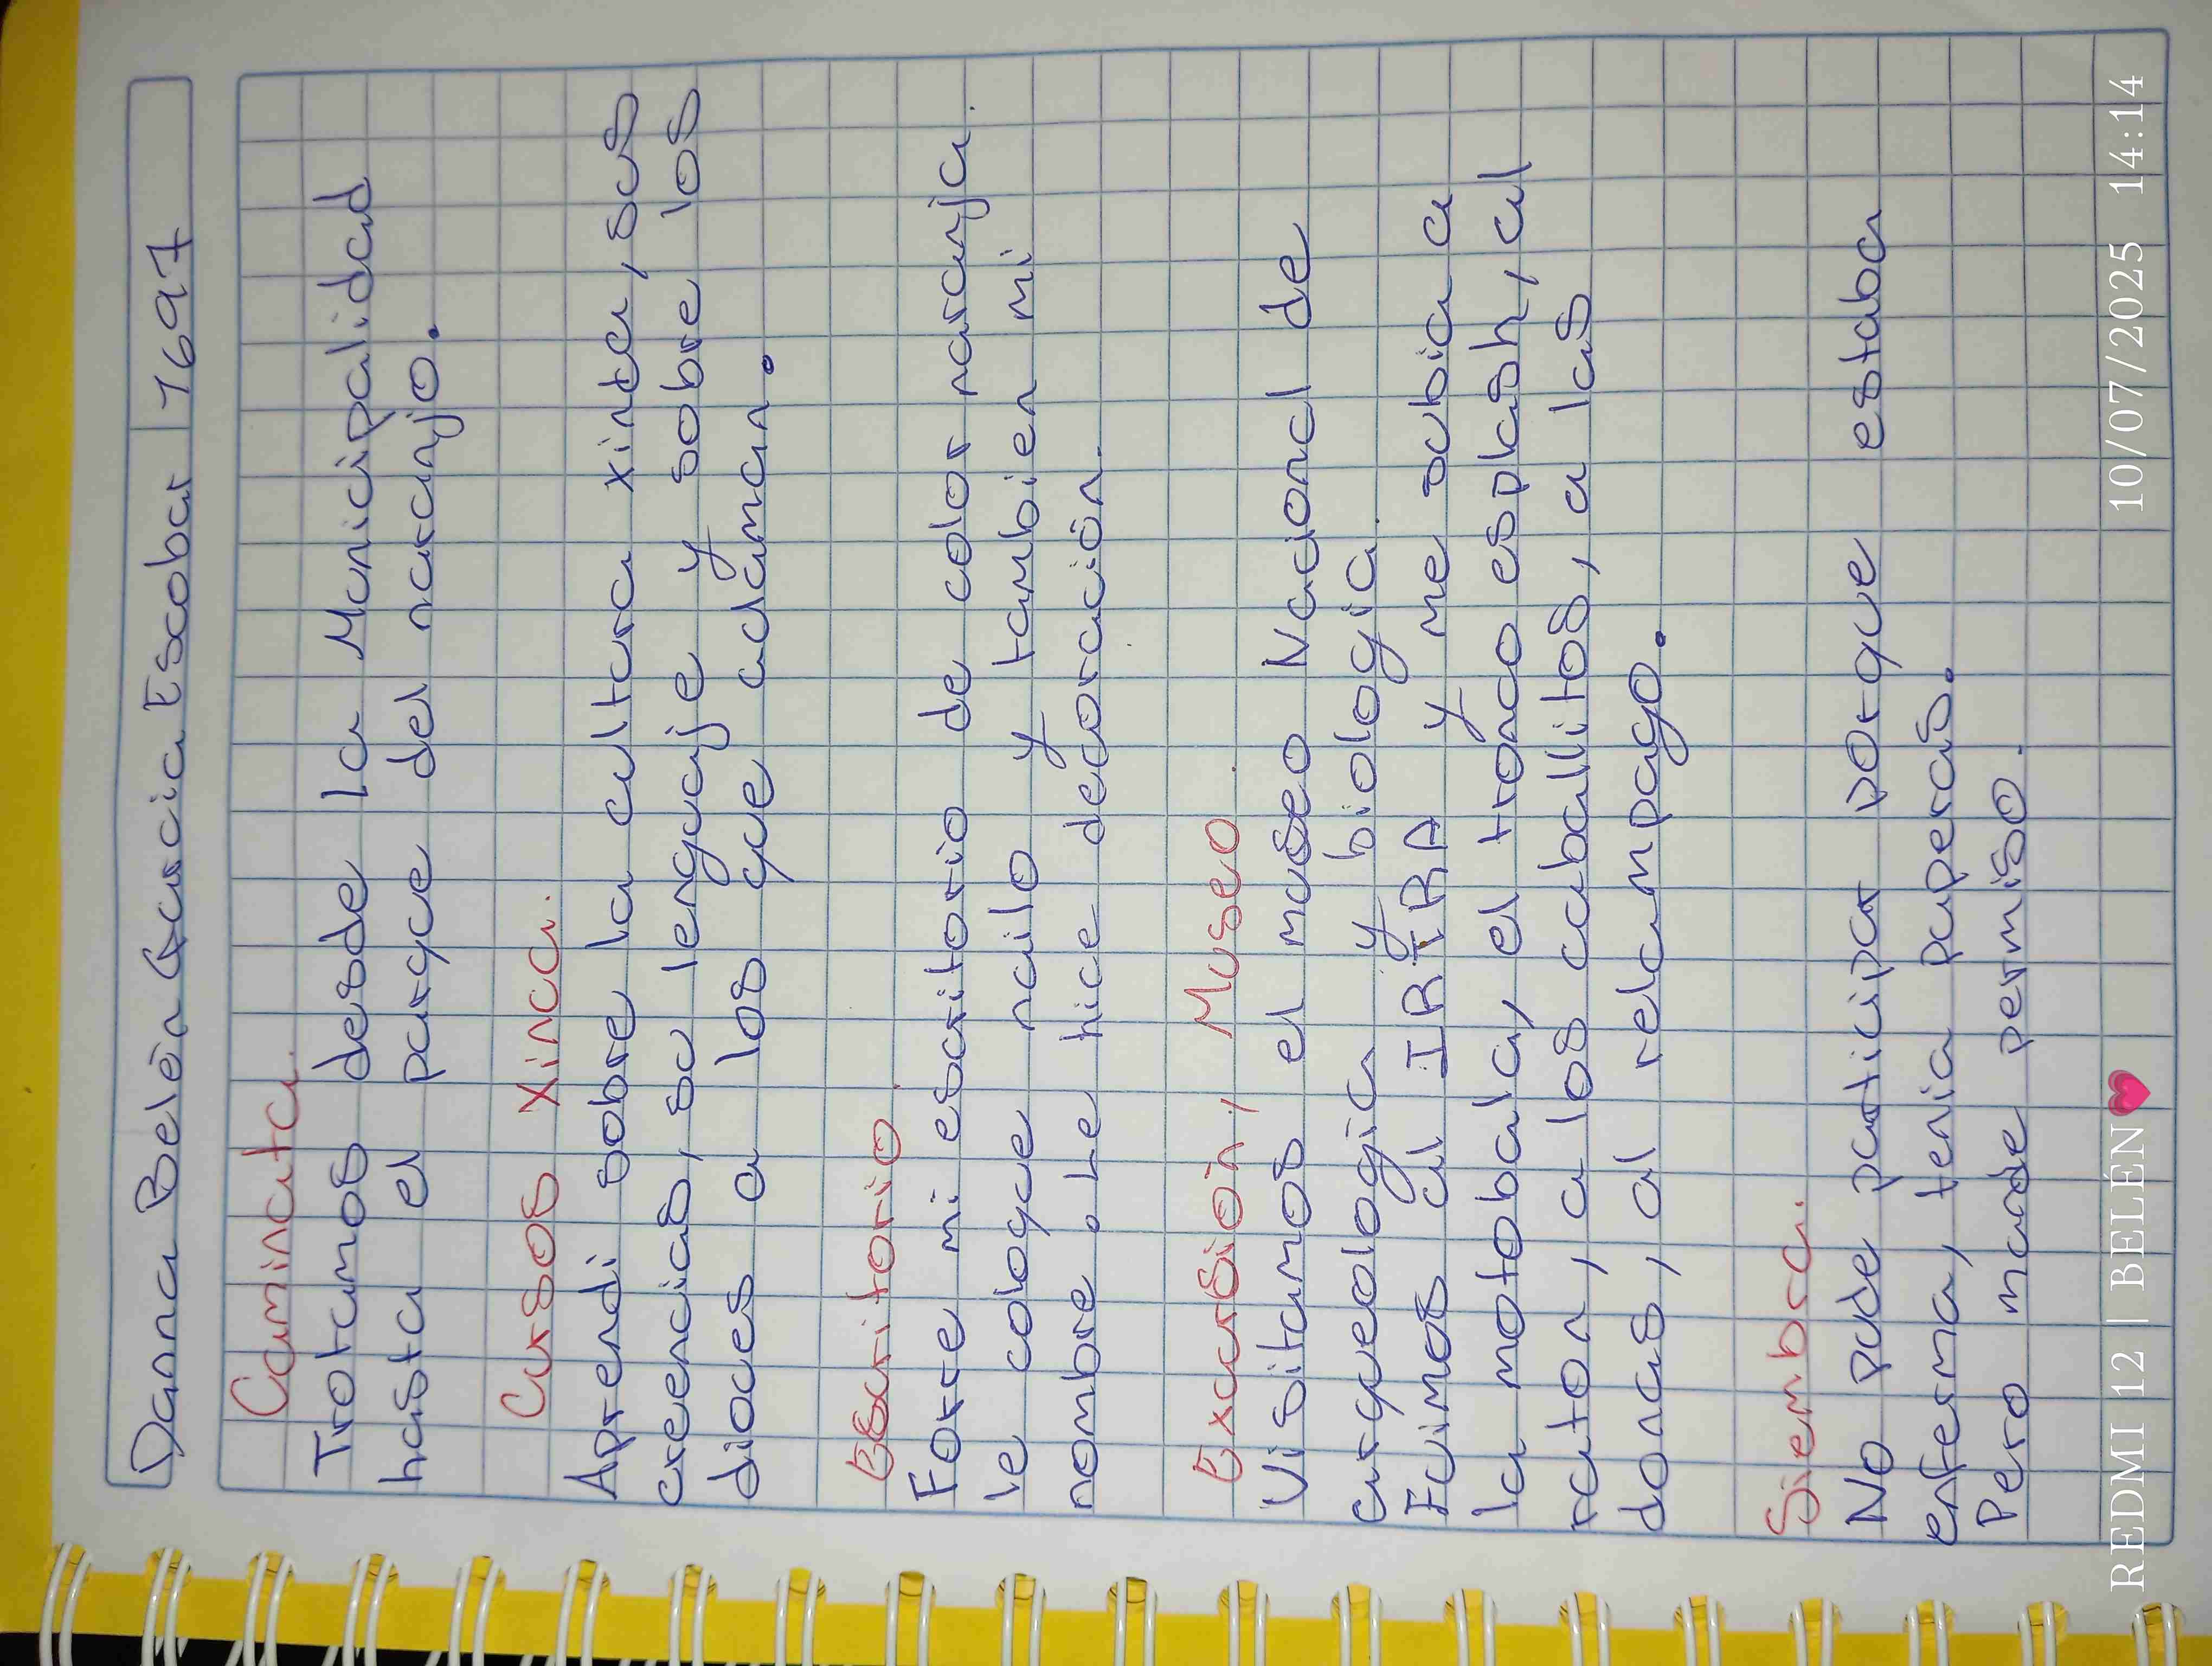 Danna Belén García Escobar 1697
Caminata.
Trotamos desde la Municipalidad
hasta el parque del naranjo.
Cursos Xinca.
Aprendi sobre la cultura xinca, sus
creencias, su lenguaje y sobre los
dioces a los que adáman.
Escritorio
Forre mi escritorio de color naranja.
le coloque nailo y tambien mi
nombre. Le hice decoración.
Excursión, Museo.
Visitamos el museo Nacional de
arqueologia y biologia.
Fuimos al IRTRA y me subia a
la motobala, el tronco esplash, al
raton, a los caballitos, a las
donas, al relampago.
Siembra.
No pude participar porque estaba
enferma, tenia paperas.
Pero mande permiso.
REDMI 12 | BELÉN💗 10/07/2025 14:14